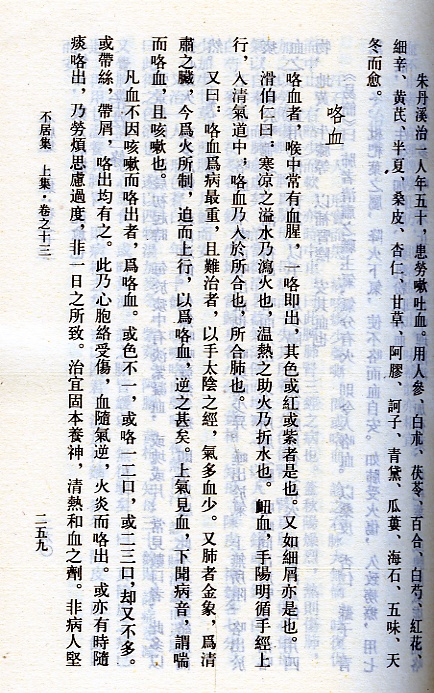 朱丹溪治一人年五十，患勞嗽吐血。用人參、白朮、茯苓、百合、白芍、紅花、
細辛、黄芪、半夏、桑皮、杏仁、甘草、阿膠、訶子、青黛、瓜蔞、海石、五味、天
冬而愈。
咯血
咯血者，喉中常有血腥，一咯即出，其色或紅或紫者是也。又如細屑亦是也。
滑伯仁曰：寒凉之溢水乃瀉火也，温熱之助火乃折水也。衄血，手陽明循手經上
行，入清氣道中，咯血乃入於所合也，所合肺也。
又曰：咯血爲病最重，且難治者，以手太陰之經，氣多血少。又肺者金象，爲清
肅之臟，今爲火所制，迫而上行，以爲咯血，逆之甚矣。上氣見血，下聞病音，謂喘
而咯血，且咳嗽也。
凡血不因咳嗽而咯出者，爲咯血。或色不一，或咯一二口，或二三口，却又不多。
或帶絲，帶屑，咯出均有之。此乃心胞絡受傷，血隨氣逆，火炎而咯出。或亦有時隨
痰咯出，乃勞煩思慮過度，非一日之所致。治宜固本養神，清熱和血之劑。非病人堅
不居集　上集·卷之十三
二五九